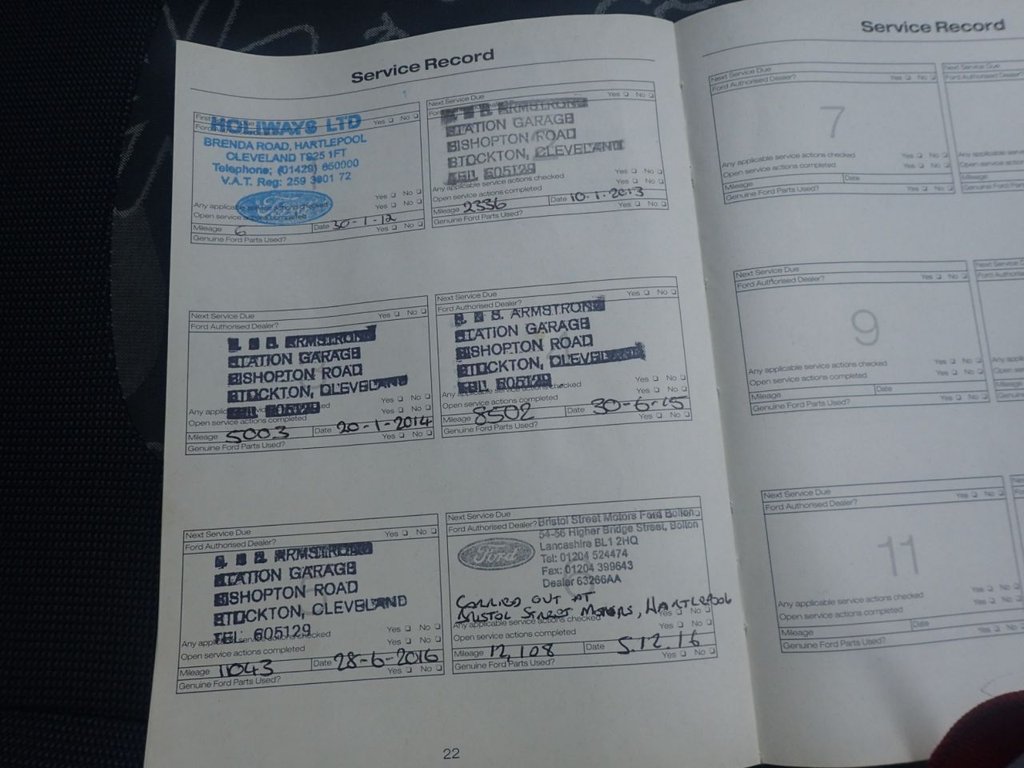 Service Record
HOLIWAYS LTD
BRENDA ROAD, HARTLEPOOL
CLEVELAND TS25 1FT
Telephone: (01429) 860000
V.A.T. Reg: 259 3901 72
Yes No
Ford
Any applicable service actions checked Yes No
Open service actions completed Yes No
Mileage 6 Date 30-1-12
Genuine Ford Parts Used?
Next Service Due
Yes No
ARMSTRONG
STATION GARAGE
BISHOPTON ROAD
STOCKTON, CLEVELAND
TEL: 605129
Any applicable service actions checked Yes No
Open service actions completed Yes No
Mileage 2336 Date 10-1-2013
Genuine Ford Parts Used? Yes No
Next Service Due
Ford Authorised Dealer? Yes No
ARMSTRONG
STATION GARAGE
BISHOPTON ROAD
STOCKTON, CLEVELAND
TEL: 605129
Yes No
Open service actions completed Yes No
Mileage 5003 Date 20-1-2014
Genuine Ford Parts Used? Yes No
Next Service Due
Ford Authorised Dealer? Yes No
& S. ARMSTRONG
STATION GARAGE
BISHOPTON ROAD
STOCKTON, CLEVELAND
TEL: 605129
Yes No
Open service actions completed Yes No
Mileage 8502 Date 30-6-15
Genuine Ford Parts Used? Yes No
Next Service Due
Ford Authorised Dealer? Yes No
ARMSTRONG
STATION GARAGE
BISHOPTON ROAD
STOCKTON, CLEVELAND
TEL: 605129
Yes No
Open service actions completed Yes No
Mileage 11043 Date 28-6-2016
Genuine Ford Parts Used? Yes No
Next Service Due
Ford Authorised Dealer? Bristol Street Motors Ford Bolton
54-56 Higher Bridge Street, Bolton
Ford
Lancashire BL1 2HQ
Tel: 01204 524474
Fax: 01204 399643
Dealer 63266AA
CARRIED OUT AT
BRISTOL STREET MOTORS, HARTLEPOOL
Any applicable service actions checked Yes No
Open service actions completed Yes No
Mileage 12,108 Date 5.12.16
Genuine Ford Parts Used? Yes No
22
Service Record
Next Service Due
Ford Authorised Dealer? Yes No
7
Any applicable service actions checked Yes No
Open service actions completed Yes No
Mileage Date
Genuine Ford Parts Used? Yes No
Next Service Due
Ford Authorised Dealer? Yes No
9
Any applicable service actions checked Yes No
Open service actions completed Yes No
Mileage Date
Genuine Ford Parts Used? Yes No
Next Service Due
Ford Authorised Dealer? Yes No
11
Any applicable service actions checked Yes No
Open service actions completed Yes No
Mileage Date
Genuine Ford Parts Used? Yes No